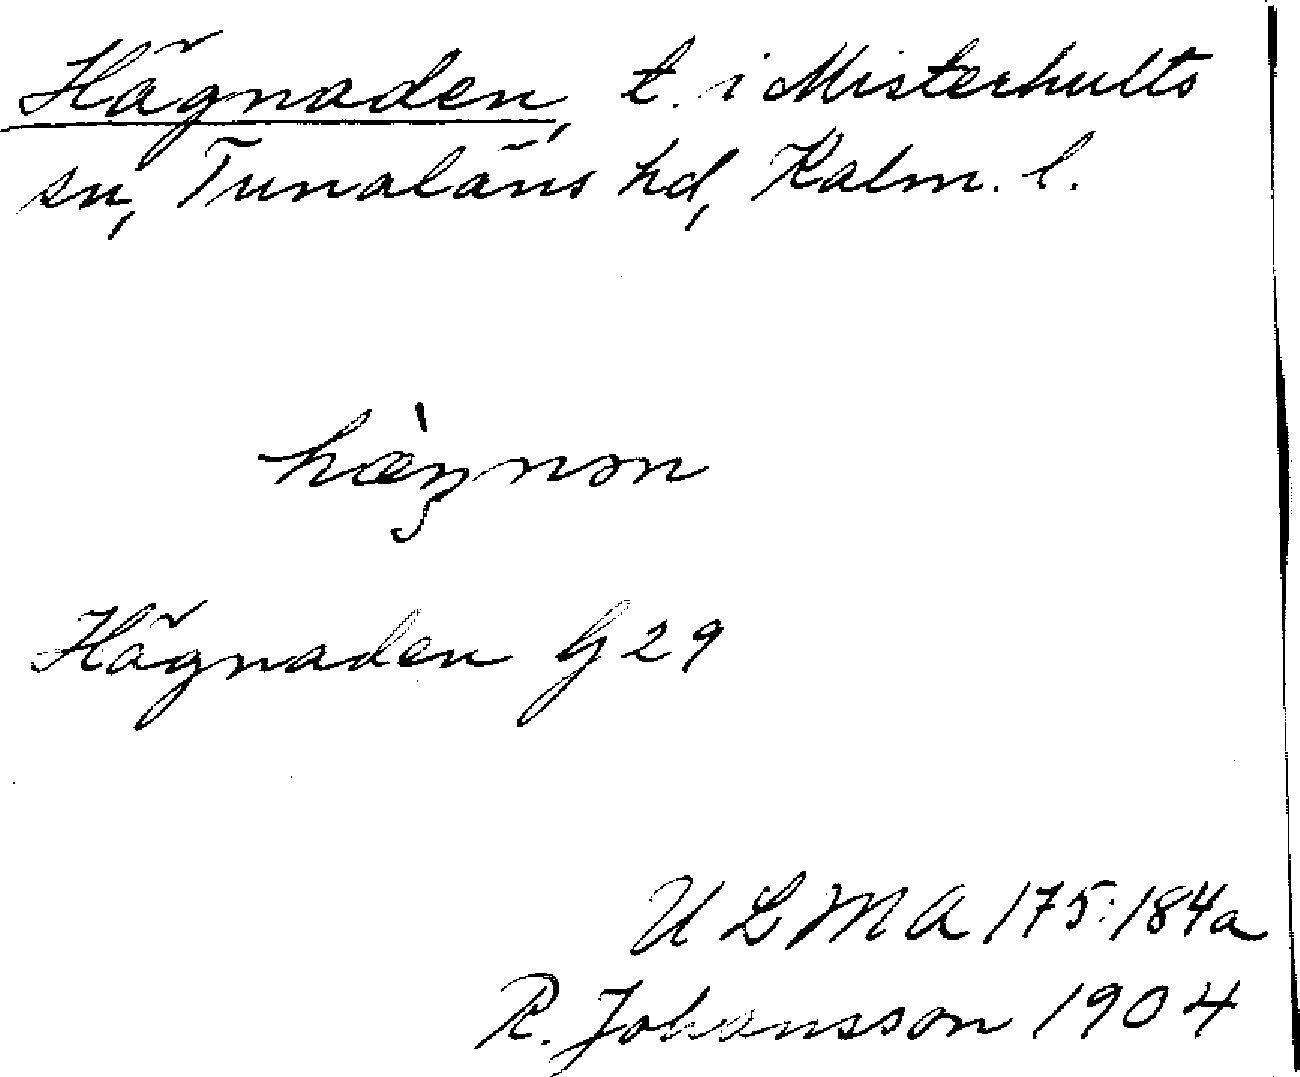 Hägnaden, t. i Misterhults
sn, Tunaläns hd, Kalm. l.
hæ̀ŋnən
Hägnaden G 29
ULMA 175:184a
R. Johansson 1904